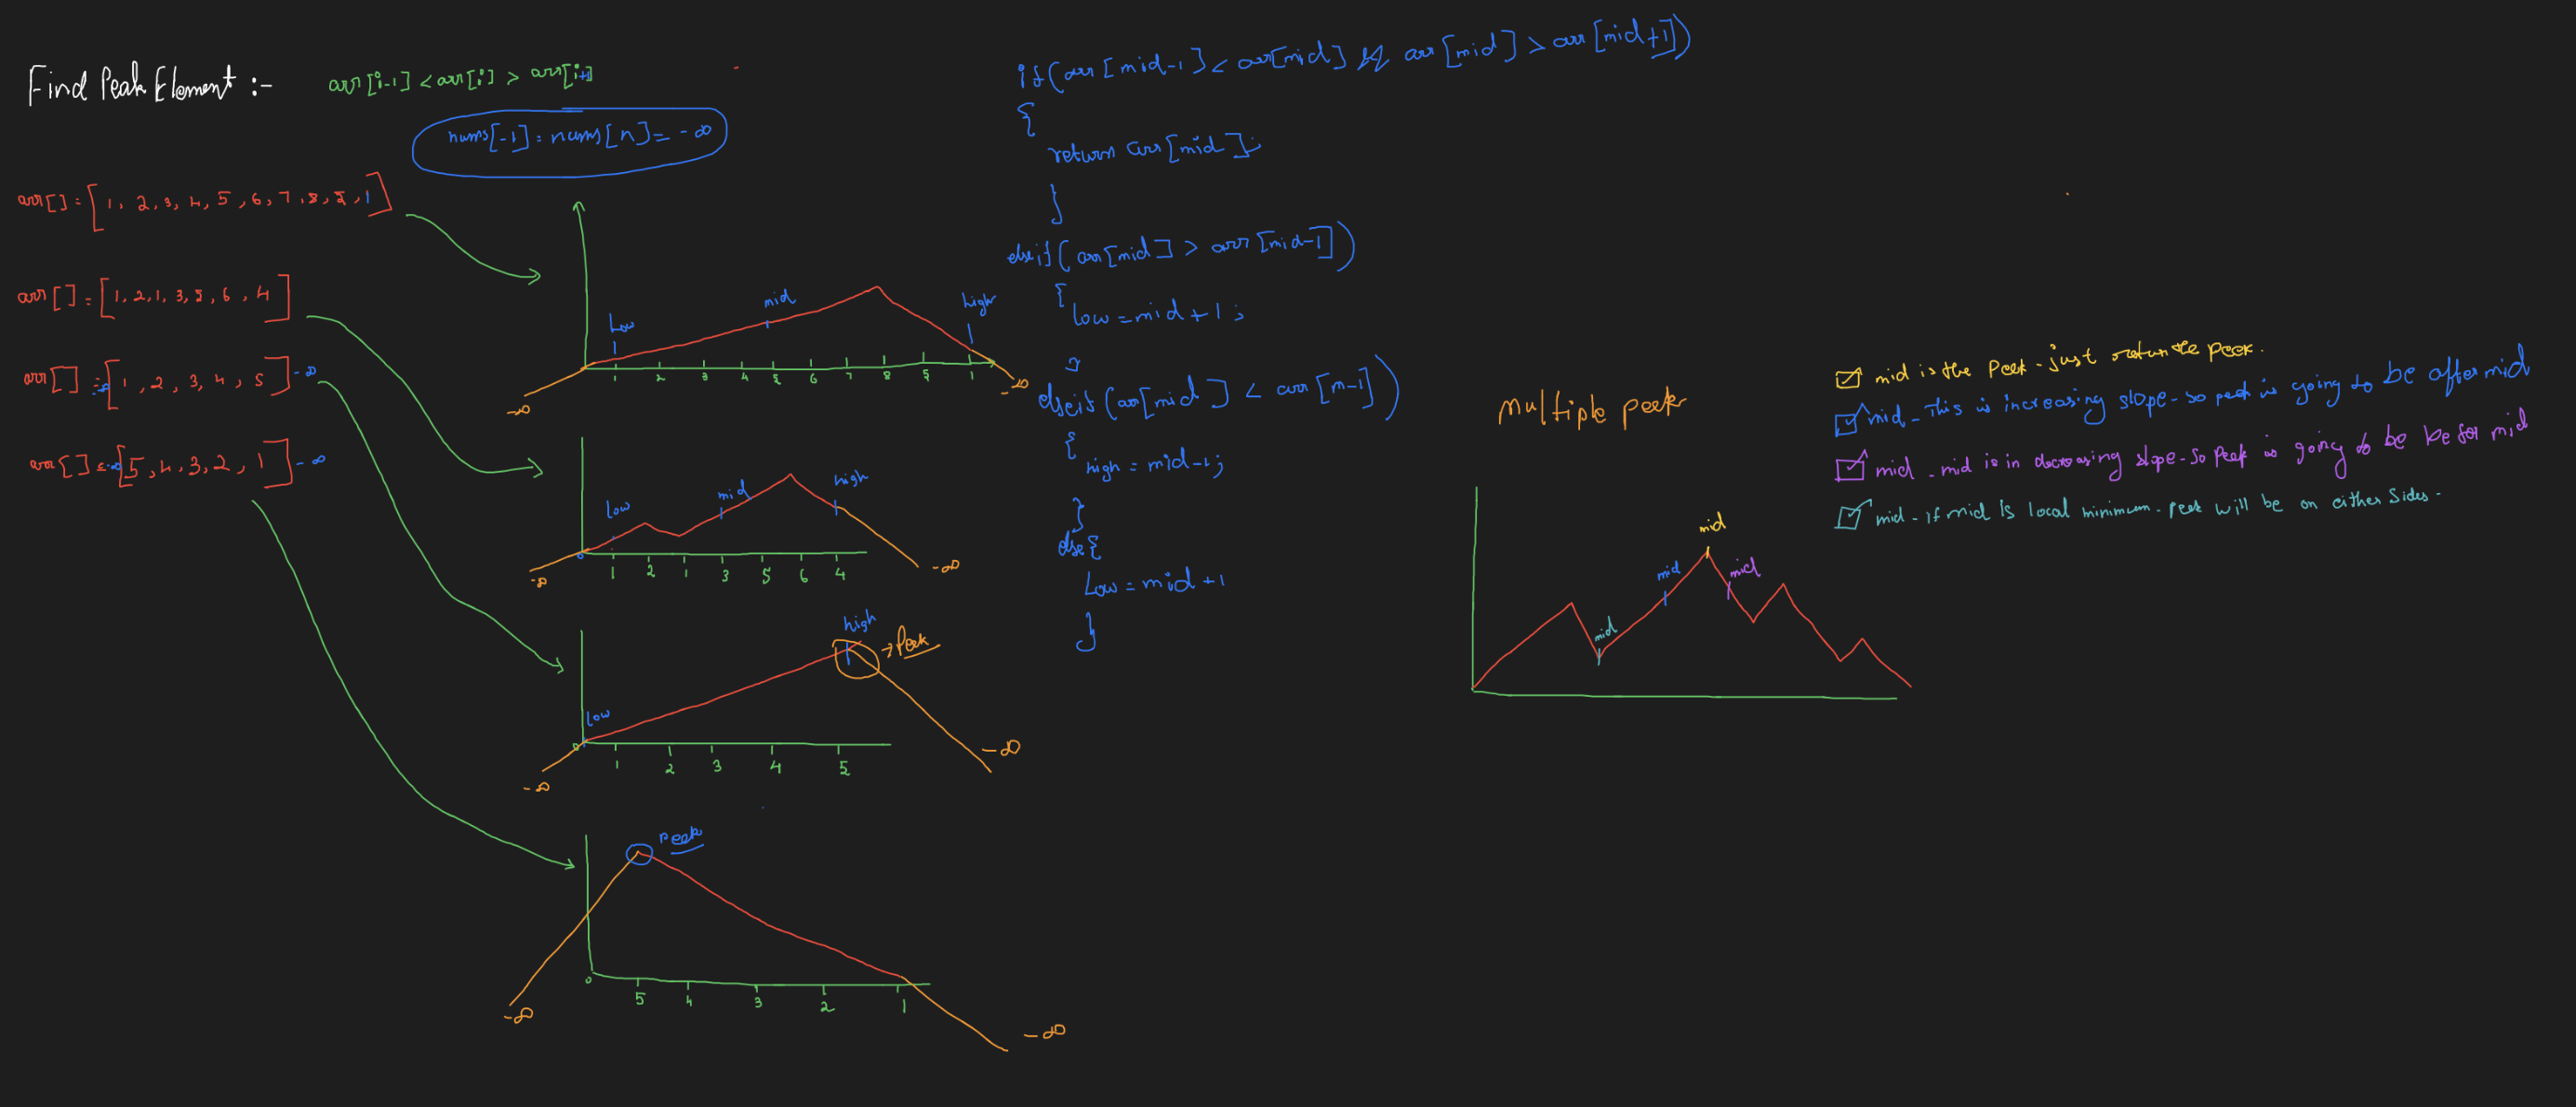 Find Peak Element :-
arr[i-1] < arr[i] > arr[i+1]
nums[-1] = nums[n] = -∞
arr[] = [1, 2, 3, 4, 5, 6, 7, 8, 5, 1]
arr[] = [1, 2, 1, 3, 5, 6, 4]
arr[] = -∞[1, 2, 3, 4, 5] -∞
arr[] = -∞[5, 4, 3, 2, 1] -∞
Low
mid
high
1 2 3 4 5 6 7 8 5 1
-∞
-∞
low
mid
high
0 1 2 1 3 5 6 4
-∞
-∞
low
high
→ Peek
0 1 2 3 4 5
-∞
-∞
Peek
0 5 4 3 2 1
-∞
-∞
if(arr[mid-1] < arr[mid] && arr[mid] > arr[mid+1])
{
return arr[mid];
}
else if(arr[mid] > arr[mid-1])
{
low = mid + 1;
}
else if(arr[mid] < arr[m-1])
{
high = mid-1;
}
else{
Low = mid + 1
}
Multiple peek
mid
mid
mid
mid
mid is the Peek - just return the peek.
mid - This is increasing slope - so peek is going to be after mid
mid - mid is in decreasing slope - so Peek is going to be befor mid
mid - if mid is local minimum - peek will be on either sides -